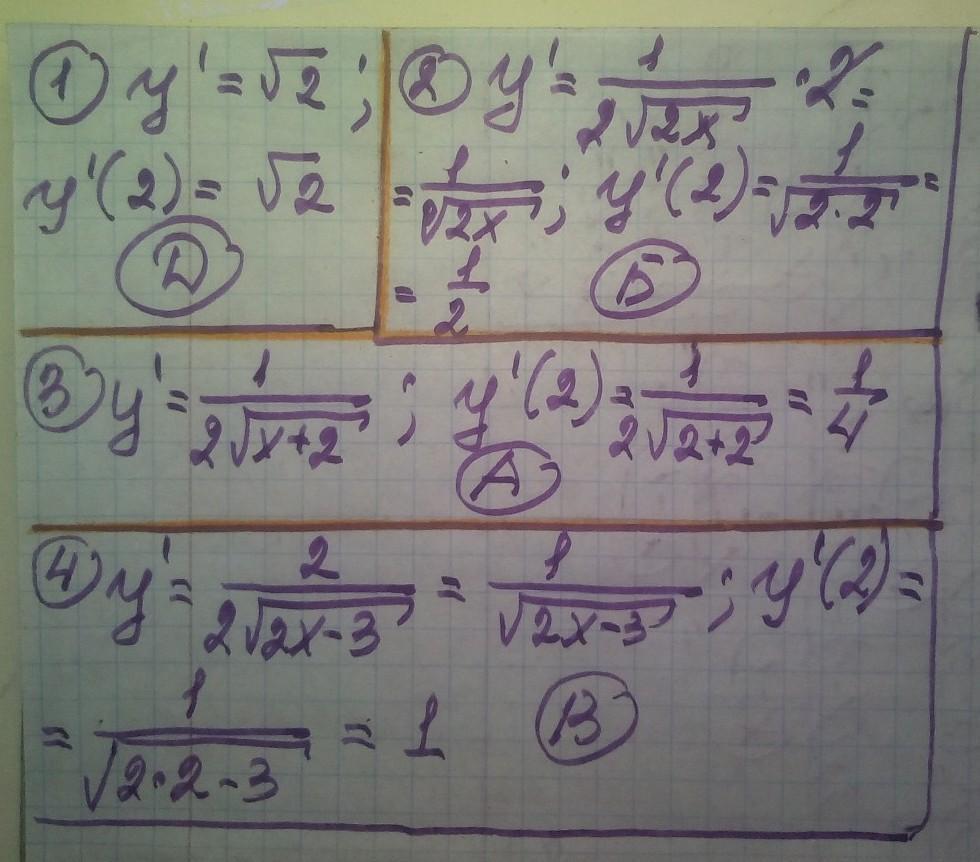 ① y' = √2 ;
y'(2) = √2
Д
② y' = 1/(2√(2x)) · 2 =
= 1/√(2x) ; y'(2) = 1/√(2·2) =
= 1/2 Б
③ y' = 1/(2√(x+2)) ; y'(2) = 1/(2√(2+2)) = 1/4
А
④ y' = 2/(2√(2x-3)) = 1/√(2x-3) ; y'(2) =
= 1/√(2·2-3) = 1 В